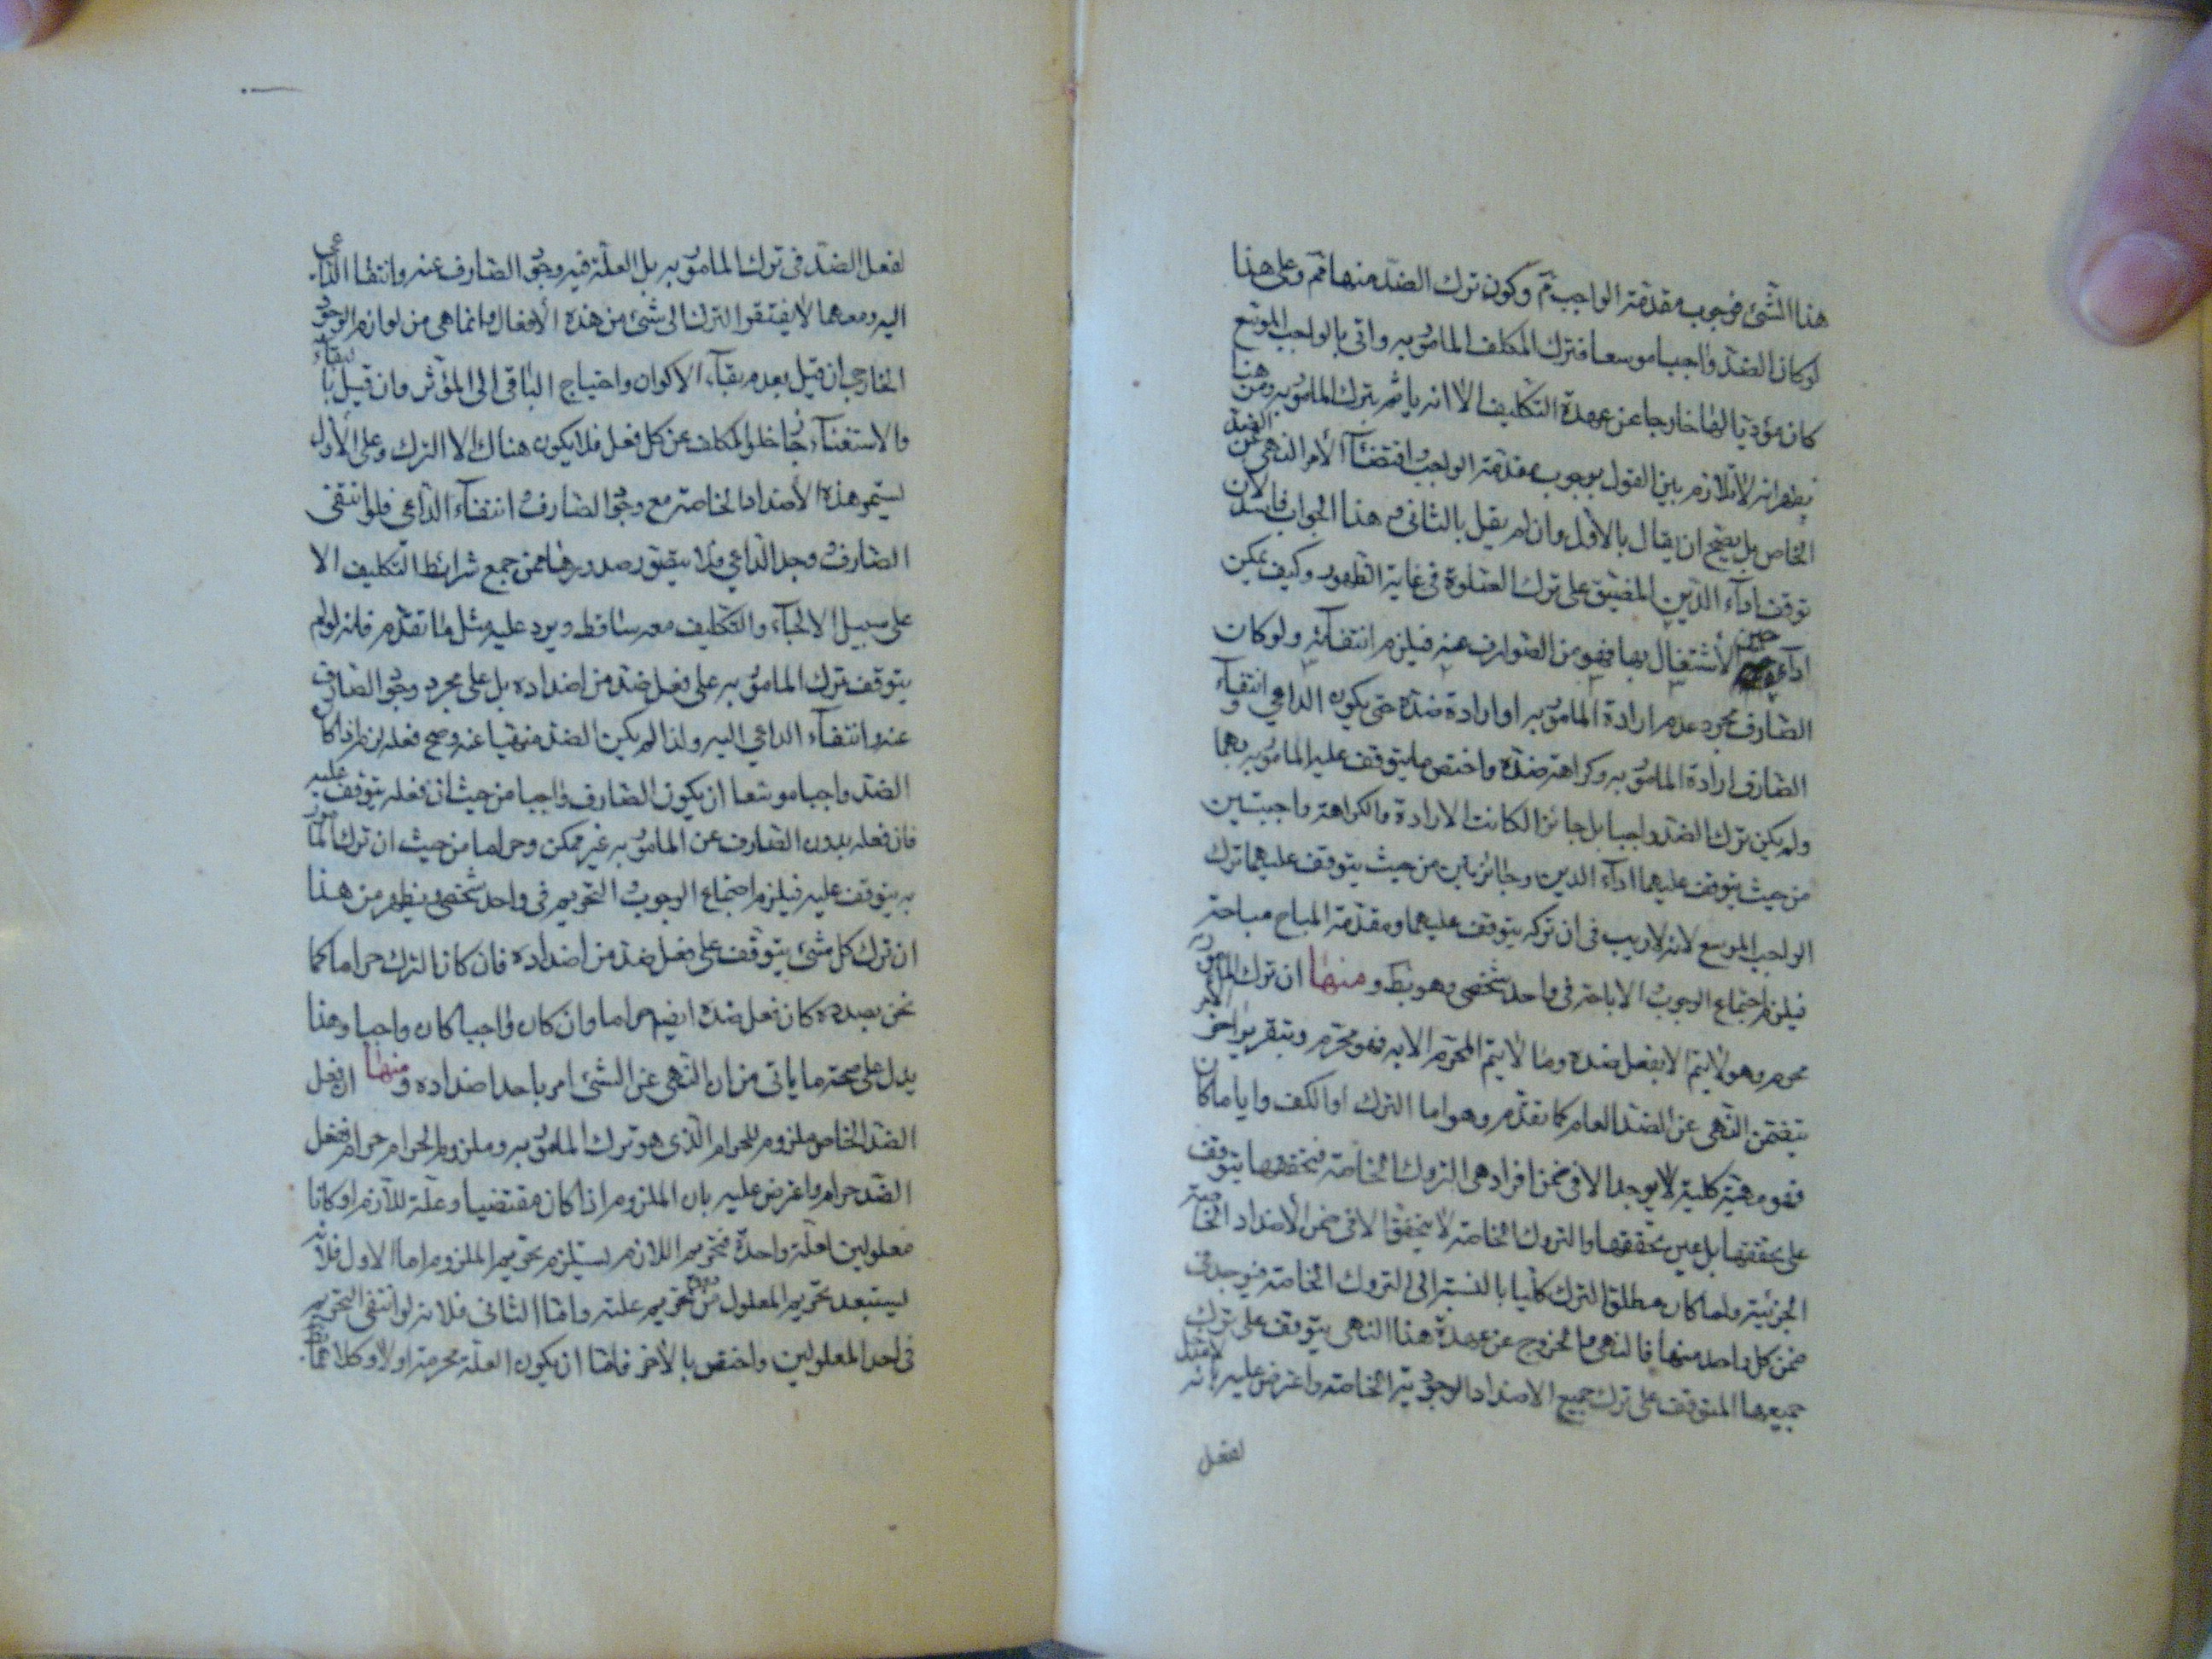 هذا الشئ فوجوب مقدمة الواجب ثم وكون ترك الضد منها ثم وعلى هذا
لو كان الضد واجبا موسعا فترك المكلف المامور به واتى بالواجب الموسع
كان مؤديا لها خارجا عن عهدة التكليف الا انه ياثم بترك المامور به ومن هنا
يظهر انه لا تلازم بين القول بوجوب مقدمة الواجب اقتضاء الأمر النهى عن الضد
الخاص بل يصح ان يقال بالاول وان لم يقل بالثانى وهذا الجواب فاسد لان
توقف اداء الدين المضيق على ترك الصلوة فى غاية الظهور وكيف يمكن
اداء حين الأشتغال بها فهو من الصوارف عنه فيلزم انتفائه ولو كان
الصارف مجرد عدم ارادة المامور به او ارادة ضده حتى يكون الداعي وانتفاء
الصارف ارادة المامور به وكراهة ضده واختص ما يتوقف عليه المامور به بهما
ولم يكن ترك الضد واجبا بل جائزا لكانت الارادة والكراهة واجبتين
من حيث يتوقف عليهما اداء الدين وجائزتين من حيث يتوقف عليهما ترك
الواجب الموسع لانه لا ريب فى ان تركه يتوقف عليهما ومقدمة المباح مباحة
فيلزم اجتماع الوجوب الاباحة فى واحد شخصى وهو بط ومنها ان ترك المامور به
محرم وهو لا يتم الا بفعل ضده وما لا يتم المحرم الا به فهو محرم وبتقرير اخر الامر
يتضمن النهى عن الضد العام كما تقدم وهو اما الترك او الكف وايا ما كان
فهو مهية كلية لا يوجد الا فى ضمن افراد هى التروك الخاصة فتحققها يتوقف
على تحققها بل عين تحققها والتروك الخاصة لا يتحقق الا فى ضمن الأضداد الخاصة
الجزئية ولما كان مطلق الترك كليا بالنسبة الى التروك الخاصة فيوجد فى
ضمن كل واحد منها فالنهى والخروج عن عهدة هذا النهى يتوقف على ترك
جميعها المتوقف على ترك جميع الاضداد الوجودية الخاصة واعترض عليه بانه لا مدخل
لفعل
لفعل الضد فى ترك المامور به بل العلة فيه وجود الصارف عنه وانتفاء الداعى
اليه ومعهما لا يفتقر الترك الى شئ من هذه الأفعال وانما هى من لوازم الوجود
الخارجى ان قيل بعدم بقاء الاكوان واحتياج الباقى الى المؤثر وان قيل بالبقاء
والاستغناء جاز خلو المكلف عن كل فعل فلا يكون هناك الا الترك وعلى الأول
يستمر هذه الأضداد الخاصة مع وجود الصارف انتفاء الداعى فلو انتفى
الصارف وجد الداعي فلا يتصور صدورها ممن جمع شرائط التكليف الا
على سبيل الالجاء والتكليف معه ساقط ويرد عليه مثل ما تقدم فانه لو لم
يتوقف ترك المامور به على فعل ضد من اضداده بل على مجرد وجود الصارف
عنه وانتفاء الداعي اليه ولذا لم يكن الضد منهيا عنه وصح فعله لزم اذا كان
الضد واجبا موسعا ان يكون الصارف واجبا من حيث ان فعله يتوقف عليه
فان فعله بدون الصارف عن المامور به غير ممكن وحراما من حيث ان ترك المامور
به يتوقف عليه فيلزم اجتماع الوجوب التحريم فى واحد شخصى ويظهر من هذا
ان ترك كل شئ يتوقف على فعل ضد من اضداده فان كان الترك حراما كما
نحن بصدده كان فعل ضده ايضم حراما وان كان واجبا كان واجبا وهذا
يدل على صحة ما ياتى من ان النهى عن الشئ امر باحد اضداده ومنها ان فعل
الضد الخاص ملزوم للحرام الذى هو ترك المامور به وملزوم الحرام حرام ففعل
الضد حرام واعترض عليه بان الملزوم اذا كان مقتضيا وعلة للازم او كانا
معلولين لعلة واحدة فتحريم اللازم يستلزم تحريم الملزوم اما الاول فلانه
يستبعد تحريم المعلول من دون تحريم علته واما الثانى فلانه لو انتفى التحريم
فى احد المعلولين واختص بالأخر فاما ان يكون العلة محرمة اولا وكلاهما